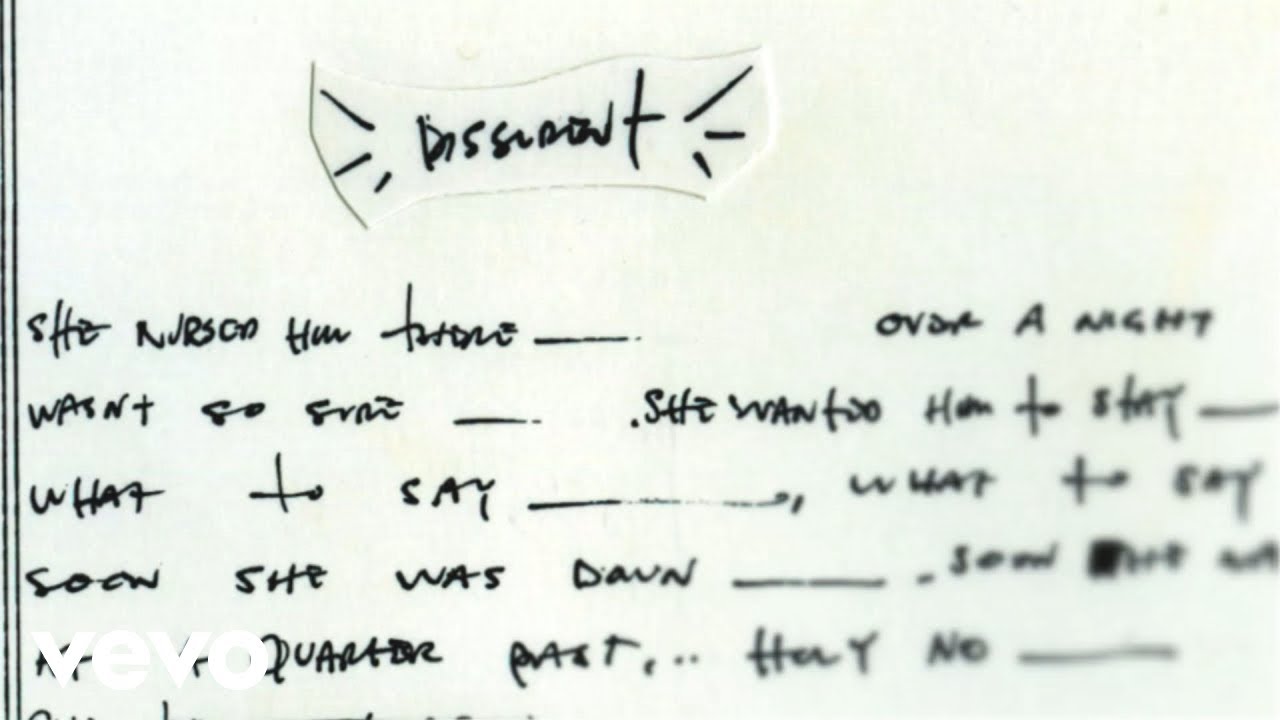 DISSIDENT
SHE NURSED HIM THERE ___ OVER A NIGHT
WASNT SO SURE ___ .SHE WANTED HIM TO STAY ___
WHAT TO SAY ___, WHAT TO SAY
SOON SHE WAS DOWN ___ . SOON HE WA
QUARTER PAST... HOLY NO ___
vevo